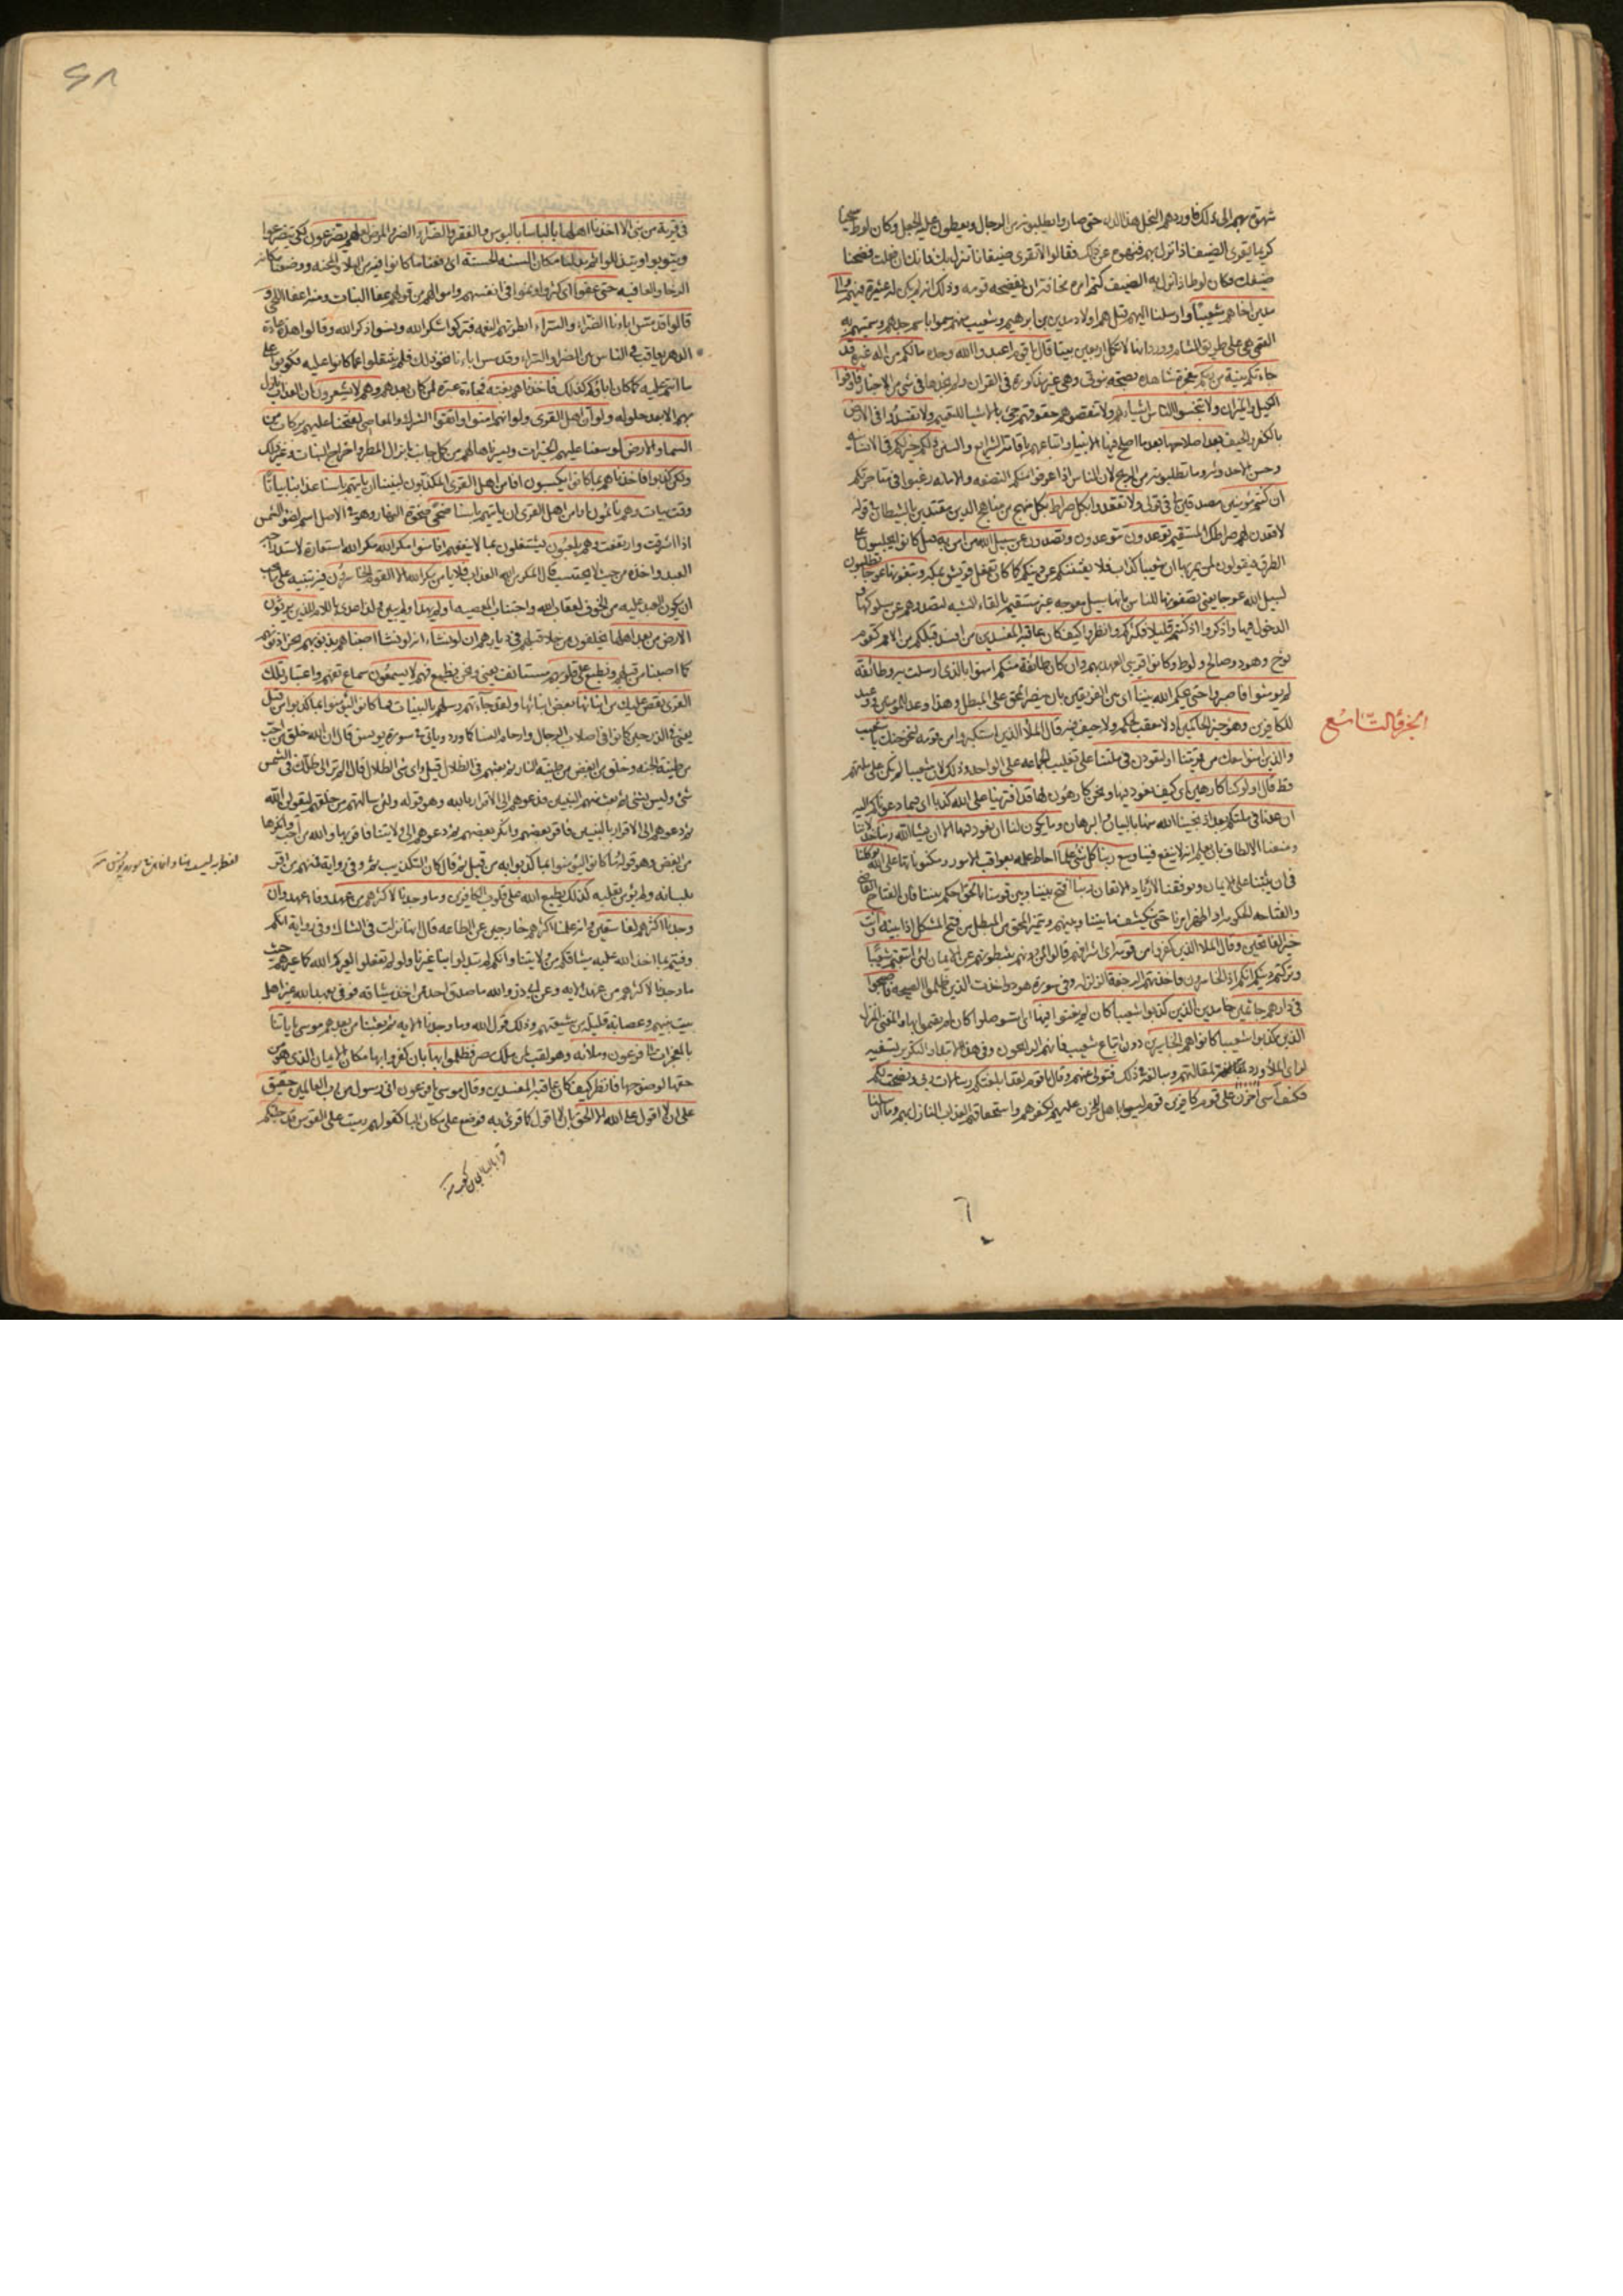 شهوة بهم الى ذلك فاوردهم البخل هذا الداء حتى صاروا يطلبونه من الرجال ويعطون عليه الجعل وكان لوط سخيا
كريما يقرى الضيف اذا نزل بهم فنهوه عن ذلك فقالوا لا تقرى ضيفانا تنزل بك فانك ان فعلت فضحنا
ضيفك فكان لوط اذا نزل به الضيف كتم امره مخافة ان يفضحه قومه وذلك انه لم يكن له عشيرة فيهم والى
مدين اخاهم شعيبا وارسلنا اليهم قيل هم اولاد مدين بن ابرهيم وشعيب منهم سموا باسم جدهم وسميتهم به
القرى هى على طريق الشام وورد انها لا تكمل اربعين بيتا قال يا قوم اعبدوا الله وحده مالكم من اله غيره قد
جاءتكم بينة من ربكم معجزة شاهدة بصحة نبوتى وهى غير مذكورة فى القران ولم نجدها فى شئ من الاخبار فاوفوا
الكيل والميزان ولا تبخسوا الناس اشياءهم ولا تنقصوهم حقوقهم جئ بالاشياء للتعميم ولا تفسدوا فى الارض
بالكفر والحيف بعد اصلاحها بعدما اصلح فيها الانبياء واتباعهم باقامة الشرايع والسنن ذلكم خير لكم فى الانسانية
وحسن الاحدوثة وما تطلبونه من الربح لان الناس اذا عرفوا منكم النصفة والامانة رغبوا فى متاجرتكم
ان كنتم مؤمنين مصدقين لى فى قولى ولا تقعدوا بكل صراط بكل منهج من مناهج الدين مقتدين بالشيطان فى قوله
لاقعدن لهم صراطك المستقيم توعدون تتوعدون وتصدون عن سبيل الله من امن به قيل كانوا يجلسون على
الطرق فيقولون لمن يمر بها ان شعيبا كذاب فلا يفتننكم عن دينكم كما كان تفعل قريش بمكة وتبغونها عوجا وتطلبون
لسبيل الله عوجا يعنى تصفونها للناس بانها سبيل معوجة غير مستقيمة بالقاء الشبه لتصدوهم عن سلوكها و
الدخول فيها واذكروا اذ كنتم قليلا فكثركم وانظروا كيف كان عاقبة المفسدين من افسد قبلكم من الامم كقوم
نوح وهود وصالح ولوط وكانوا قريبى العهد بهم وان كان طائفة منكم امنوا بالذى ارسلت به وطائفة
لم يؤمنوا فاصبروا حتى يحكم الله بيننا اى بين الفريقين بان ينصر المحق على المبطل وهذا وعد للمؤمنين ووعيد
للكافرين وهو خير الحاكمين اذ لا معقب لحكمه ولا حيف فيه قال الملا الذين استكبروا من قومه لنخرجنك يا شعيب
الجزؤ التاسع
والذين امنوا معك من قريتنا او لتعودن فى ملتنا على تغليب الجماعة على الواحد وذلك لان شعيبا لم يكن على ملتهم
قط قال اولو كنا كارهين اى كيف نعود فيها ونحن كارهون لها قد افترينا على الله كذبا اى فيما دعوناكم اليه
ان عدنا فى ملتكم بعد اذ نجينا الله منها بالبيان والبرهان وما يكون لنا ان نعود فيها الا ان يشاء الله ربنا خذلاننا
ومنعنا الالطاف بان يعلم انه لا ينفع فينا وسع ربنا كل شئ علما احاط علمه بعواقب الامور ومكنوناتها على الله توكلنا
فى ان يثبتنا على الايمان ويوفقنا لازدياد الايقان ربنا افتح بيننا وبين قومنا بالحق احكم بيننا فان الفتاح القاضى
والفتاحة الحكومة او اظهر امرنا حتى ينكشف ما بيننا وبينهم ويتميز المحق من المبطل من فتح المشكل اذا بينه وانت
خير الفاتحين وقال الملا الذين كفروا من قومه اى اشرافهم قالوا لمن دونهم يثبطونهم عن الايمان لئن اتبعتم شعيبا
وتركتم دينكم انكم اذا لخاسرون فاخذتهم الرجفة الزلزلة وفى سورة هود واخذت الذين ظلموا الصيحة فاصبحوا
فى دارهم جاثمين خامدين الذين كذبوا شعيبا كان لم يغنوا فيها اى استوصلوا كان لم يقيموا بها والمغنى المنزل
الذين كذبوا شعيبا كانوا هم الخاسرين دون اتباع شعيب فانهم الرابحون وفى هذا الابتداء والتكرير تسفيه
لراى الملأ ورد لمقالتهم ومبالغة فى ذلك فتولى عنهم وقال يا قوم لقد ابلغتكم رسالات ربى ونصحت لكم
فكيف آسى احزن على قوم كافرين قوم ليسوا باهل للحزن عليهم لكفرهم واستحقاقهم العذاب النازل بهم وما ارسلنا
فى قرية من نبى الا اخذنا اهلها بالباساء بالبؤس والفقر والضراء الضر والمرض لعلهم يضرعون لكى يتضرعوا
ويتوبوا ويتذللوا ثم بدلنا مكان السيئة الحسنة اى رفعنا ما كانوا فيه من البلاء والمحنة ووضعنا مكانه
الرخاء والعافية حتى عفوا اى كثروا ونموا فى انفسهم واموالهم من قولهم عفا النبات ومنه اعفاء اللحى و
قالوا قد مس اباءنا الضراء والسراء ابطرتهم النعمة فتركوا شكر الله ونسوا ذكر الله وقالوا هذه عادة
الدهر يعاقب فى الناس بين الضراء والسراء وقد مس اباءنا نحو ذلك فلم ينتقلوا عما كانوا عليه فكونوا على
ما انتم عليه كما كان اباؤكم كذلك فاخذناهم بغتة فجاءة عبرة لمن كان بعدهم وهم لا يشعرون بان العذاب نازل
بهم الا بعد حلوله ولو ان اهل القرى ولو انهم امنوا واتقوا الشرك والمعاصى لفتحنا عليهم بركات من
السماء والارض لوسعنا عليهم الخيرات ويسرناها لهم من كل جانب بانزال المطر واخراج النبات وغير ذلك
ولكن كذبوا فاخذناهم بما كانوا يكسبون افامن اهل القرى المكذبون لنبينا ان ياتيهم باسنا عذابنا بياتا
وقت بيات وهم نائمون اوامن اهل القرى ان ياتيهم باسنا ضحى ضحوة النهار وهو فى الاصل اسم لضوء الشمس
اذا اشرقت وارتفعت وهم يلعبون يشتغلون بما لا ينفعهم افامنوا مكر الله مكر الله استعارة لاستدراجه
العبد واخذه من حيث لا يحتسب قال المكر من الله العذاب فلا يامن مكر الله الا القوم الخاسرون فيه تنبيه على ما يجب
ان يكون العبد عليه من الخوف لعقاب الله واجتناب المعصية اولم يهد اولم يبين ولذا عدى باللام للذين يرثون
الارض من بعد اهلها يخلفون من خلا قبلهم فى ديارهم ان لو نشاء انه لو نشاء اصبناهم بذنوبهم بجزاء ذنوبهم
كما اصبنا من قبلهم ونطبع على قلوبهم مستانف يعنى ونحن نطبع فهم لا يسمعون سماع تفهم واعتبار تلك
القرى نقص عليك من انبائها بعض انبائها ولقد جآءتهم رسلهم بالبينات فما كانوا ليؤمنوا بما كذبوا من قبل
يعنى فى الذر حين كانوا فى اصلاب الرجال وارحام النساء كما ورد وياتى فى سورة يونس قال ان الله خلق من احب
من طينة الجنة وخلق من ابغض من طينة النار ثم بعثهم فى الظلال قيل واى شئ الظلال قال الم تر الى ظلك فى الشمس
شئ وليس بشئ ثم بعث منهم النبيين فدعوهم الى الاقرار بالله وهو قوله ولئن سالتهم من خلقهم ليقولن الله
ثم دعوهم الى الاقرار بالنبيين فاقر بعضهم وانكر بعضهم ثم دعوهم الى ولايتنا فاقر بها والله من احب وانكرها
من ابغض وهو قوله فما كانوا ليؤمنوا بما كذبوا به من قبل ثم قال كان التكذيب ثم وفى رواية فمنهم من اقر
بلسانه ولم يؤمن بقلبه كذلك يطبع الله على قلوب الكافرين وما وجدنا لاكثرهم من عهد وفاء عهد وان
وجدنا اكثرهم لفاسقين وانه علمنا اكثرهم خارجين عن الطاعة قال انها نزلت فى الشاك وفى رواية انكم
وفيتم بما اخذ الله عليه ميثاقكم من ولايتنا وانكم لم تبدلوا بنا غيرنا ولو لم تفعلوا لعيركم الله كما عيرهم حيث
ما وجدنا لاكثرهم من عهد الاية وعن ابى ذر والله ما صدق احد ممن اخذ ميثاقه فوفى بعهد الله غير اهل
بيت نبيهم وعصابة قليلة من شيعتهم وذلك قول الله وما وجدنا الاية ثم بعثنا من بعدهم موسى باياتنا
بالمعجزات الى فرعون وملائه وهو لقب لمن ملك مصر فظلموا بها بان كفروا بها مكان الايمان الذى هو من
حقها لوضوحها فانظر كيف كان عاقبة المفسدين وقال موسى يا فرعون انى رسول من رب العالمين حقيق
على ان لا اقول على الله الا الحق بان لا اقول كما قرئ به فوضع على مكان الباء كقولهم رميت على القوس قد جئتكم